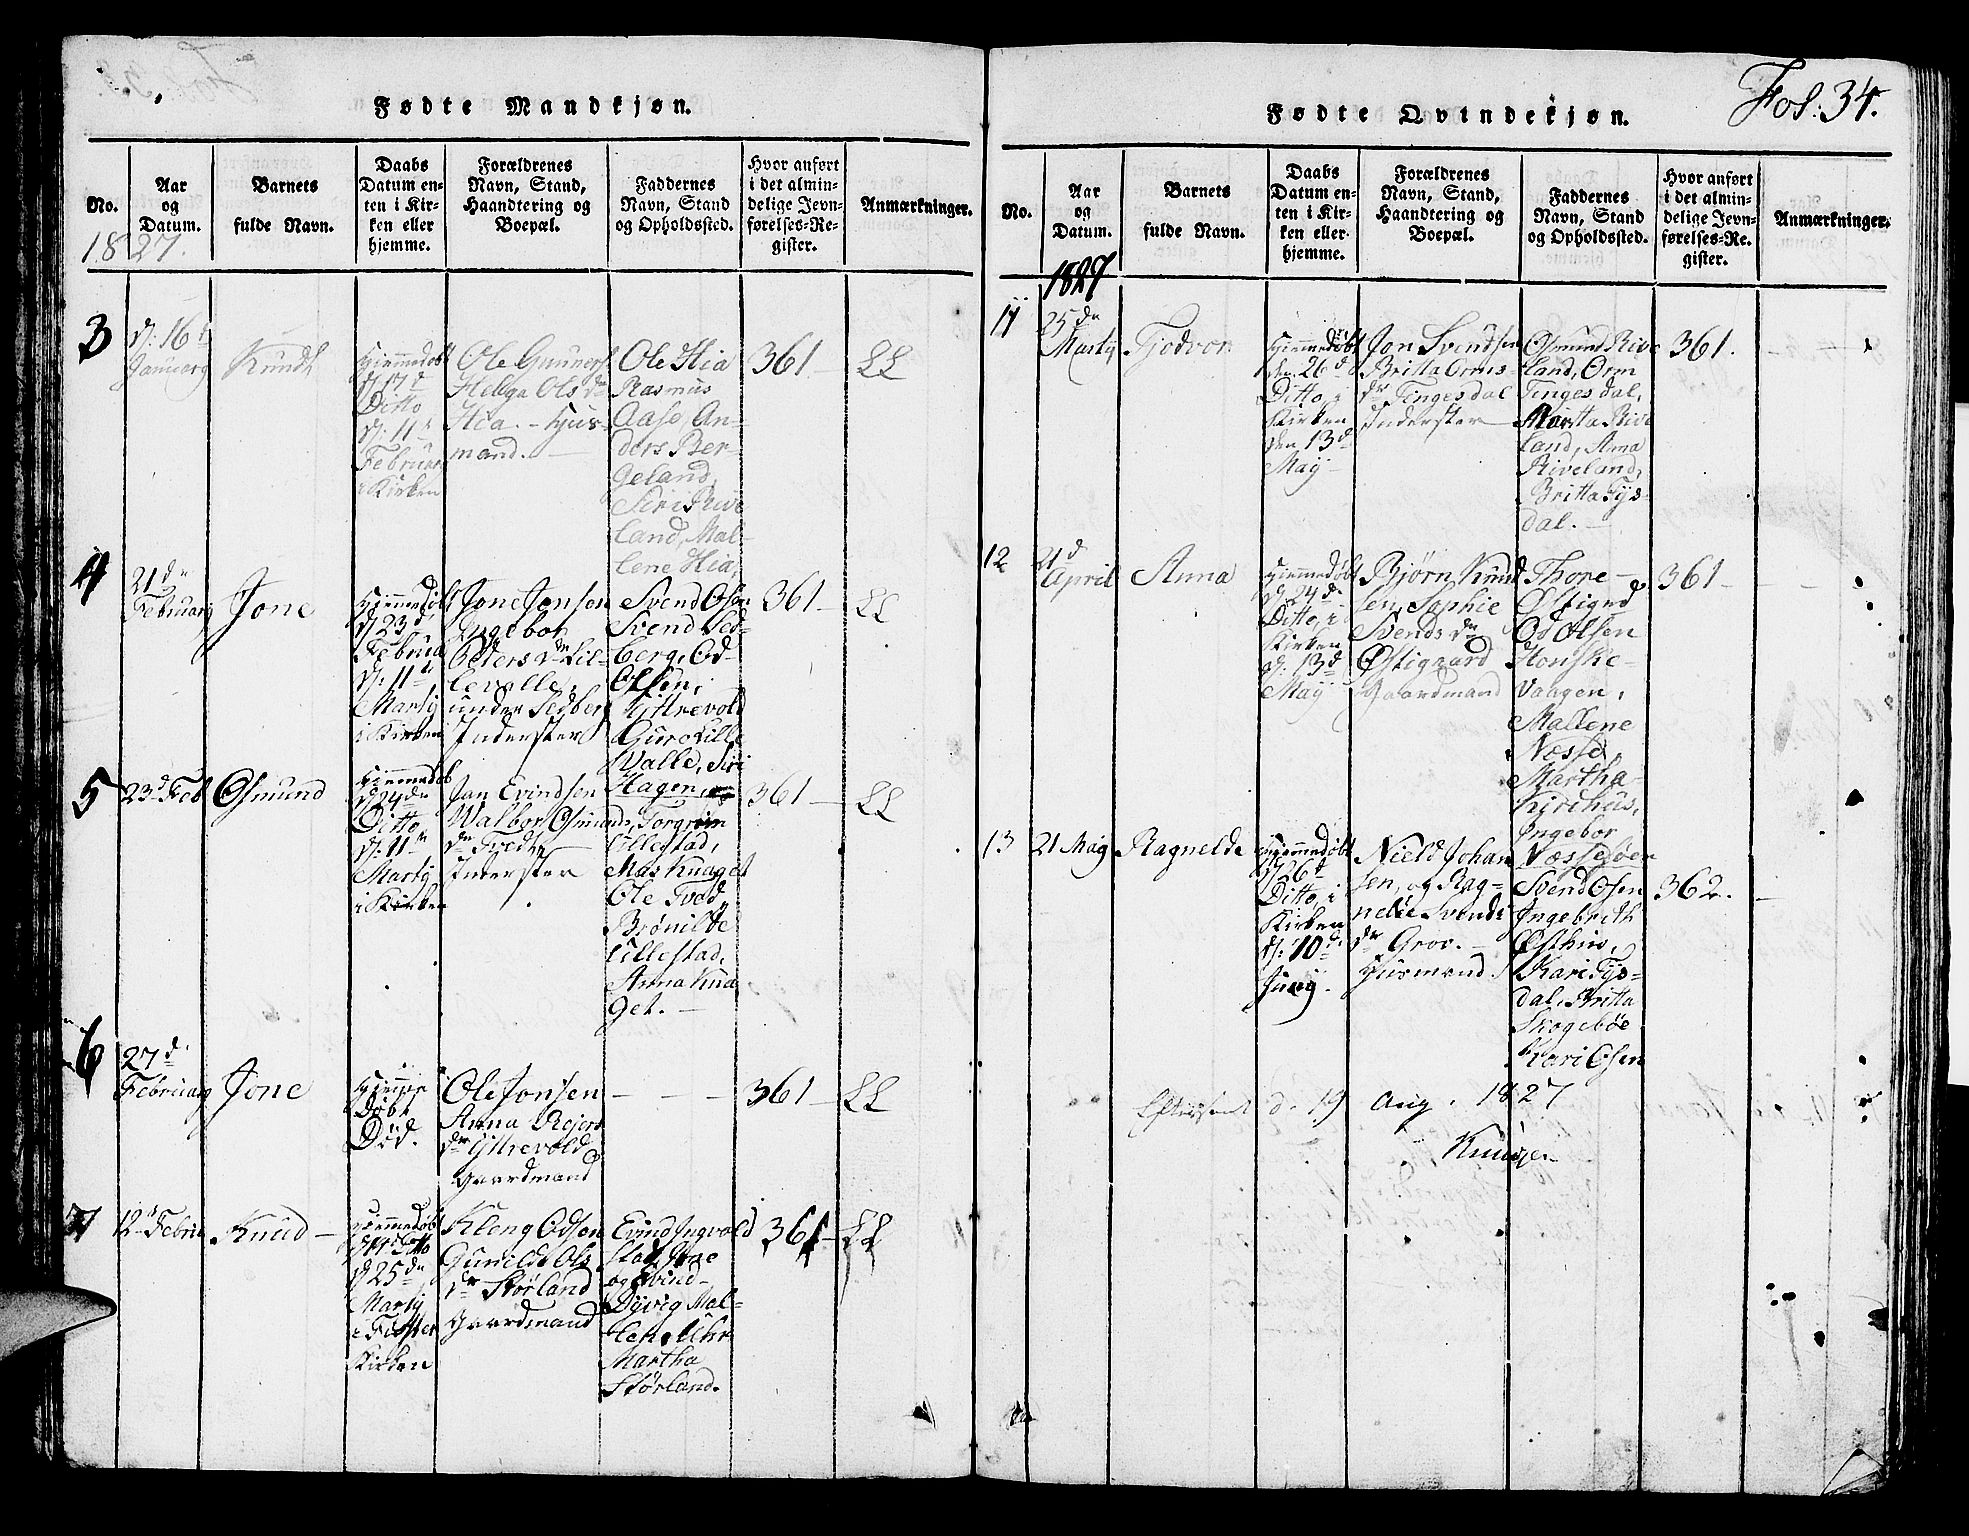 Fødte Mandkjøn.
No.
Aar og Datum.
Barnets fulde Navn.
Daabs Datum enten i Kirken eller hjemme.
Forældrenes Navn, Stand, Haandtering og Boepæl.
Faddernes Navn, Stand og Opholdssted.
Hvor anført i det almindelige Jevnførelses-Register.
Anmærkninger.
1827.
3
d: 16
Januarg
Kundt
Hjemmedøbt
d 17d
Ditto
d: 11
Februar
i Kirken
Ole Gunners
Helga Ols dr
Hia. - Hus-
mand. -
Ole Hia
Rasmus
Aase, An-
ders Ber-
geland,
Siri Rive
land, Mal-
lene Hia,
361 -
LL
4
21de
Februarg
Jone
Hjemmedøbt
d 23d
Februa
d: 11
Martij
i Kirken
Jone Jonsen
Ingebor
Peders dr Lil-
levalle,
under Sedberg
Inderster
Svend Osen
Svend Sed-
berg, Od-
Olsen,
Ystrevold
Guro Lille
Valle, Siri
Hagen,
361 -
LL
5
23d Feb
Osmund
Hjemmedøb
d 24de
Ditto,
d: 11
Martij
i Kirken
Jan Evindsen
Walbor Osmunds
dr Tvedt
Inderster
Torgrim
Lillestad,
Mas Knaget
Ole Tved
Brønilde
Lillestad,
Anna Kna
get. -
361 -
LL
6
27d
Februarg
Jone
Hjemme
Døbt
Død.
Ole Jonsen
Anna Rejers
dr Ystrevold
Gaardmand
- - -
361 -
LL
7
12 Februa
Knud -
Hjemmedøbt
d 14 Ditto
d 25de
Martij
i Fister
Kirken
Kleng Odsen
Gunilde Ols
dr Størland
Gaardmand
Evind Ingvald
stad, Jone
og Evind
Dyvig Mal-
lene Uhr
Martha
Størland.
361 -
LL
Fol: 34.
Fødte Qvindekjøn.
No.
Aar og Datum.
Barnets fulde Navn.
Daabs Datum enten i Kirken eller hjemme.
Forældrenes Navn, Stand, Haandtering og Boepæl.
Faddernes Navn, Stand og Opholdssted.
Hvor anført i det almindelige Jevnførelses-Register.
Anmærkninger.
1827
11
25de
Martij
Tjodvor
Hjemmedøbt
den 26d
Ditto, i
Kirken
den 13d
Maij
Jon Svendsen
Britta Orms
dr Tingesdal
Inderster
Osmund Rive
land, Orm
Tingesdal,
Marta Rive
land, Anna
Riveland,
Britta Tys-
dal. -
361.
12
21d
April
Anna
Hjemmedøbt
d 24de
Ditto, i
Kirken
d: 13d
Maij
Bjørn Knud
sen, Sophie
Svends dr
Østigaard
Gaardmand
Thore -
Østigrd
Od Olsen
Honske-
vaagen,
Mallene
Næsse,
Martha
Kirchus,
Ingebor
Næssesøen
361 -
13
21 Maij
Ragnelde
Hjemmedøbt
d 26d
Ditto, i
Kirken
d: 10d
Junij.
Nield Johan
sen, og Rag-
nelde Svends
dr Grov. -
Husmand.
Svend Osen
Ingebreth
Østhus,
Kari Tys-
dal, Britta
Skogebøe
Kari Osen
362.
Efterseet d. 19 Aug. 1827